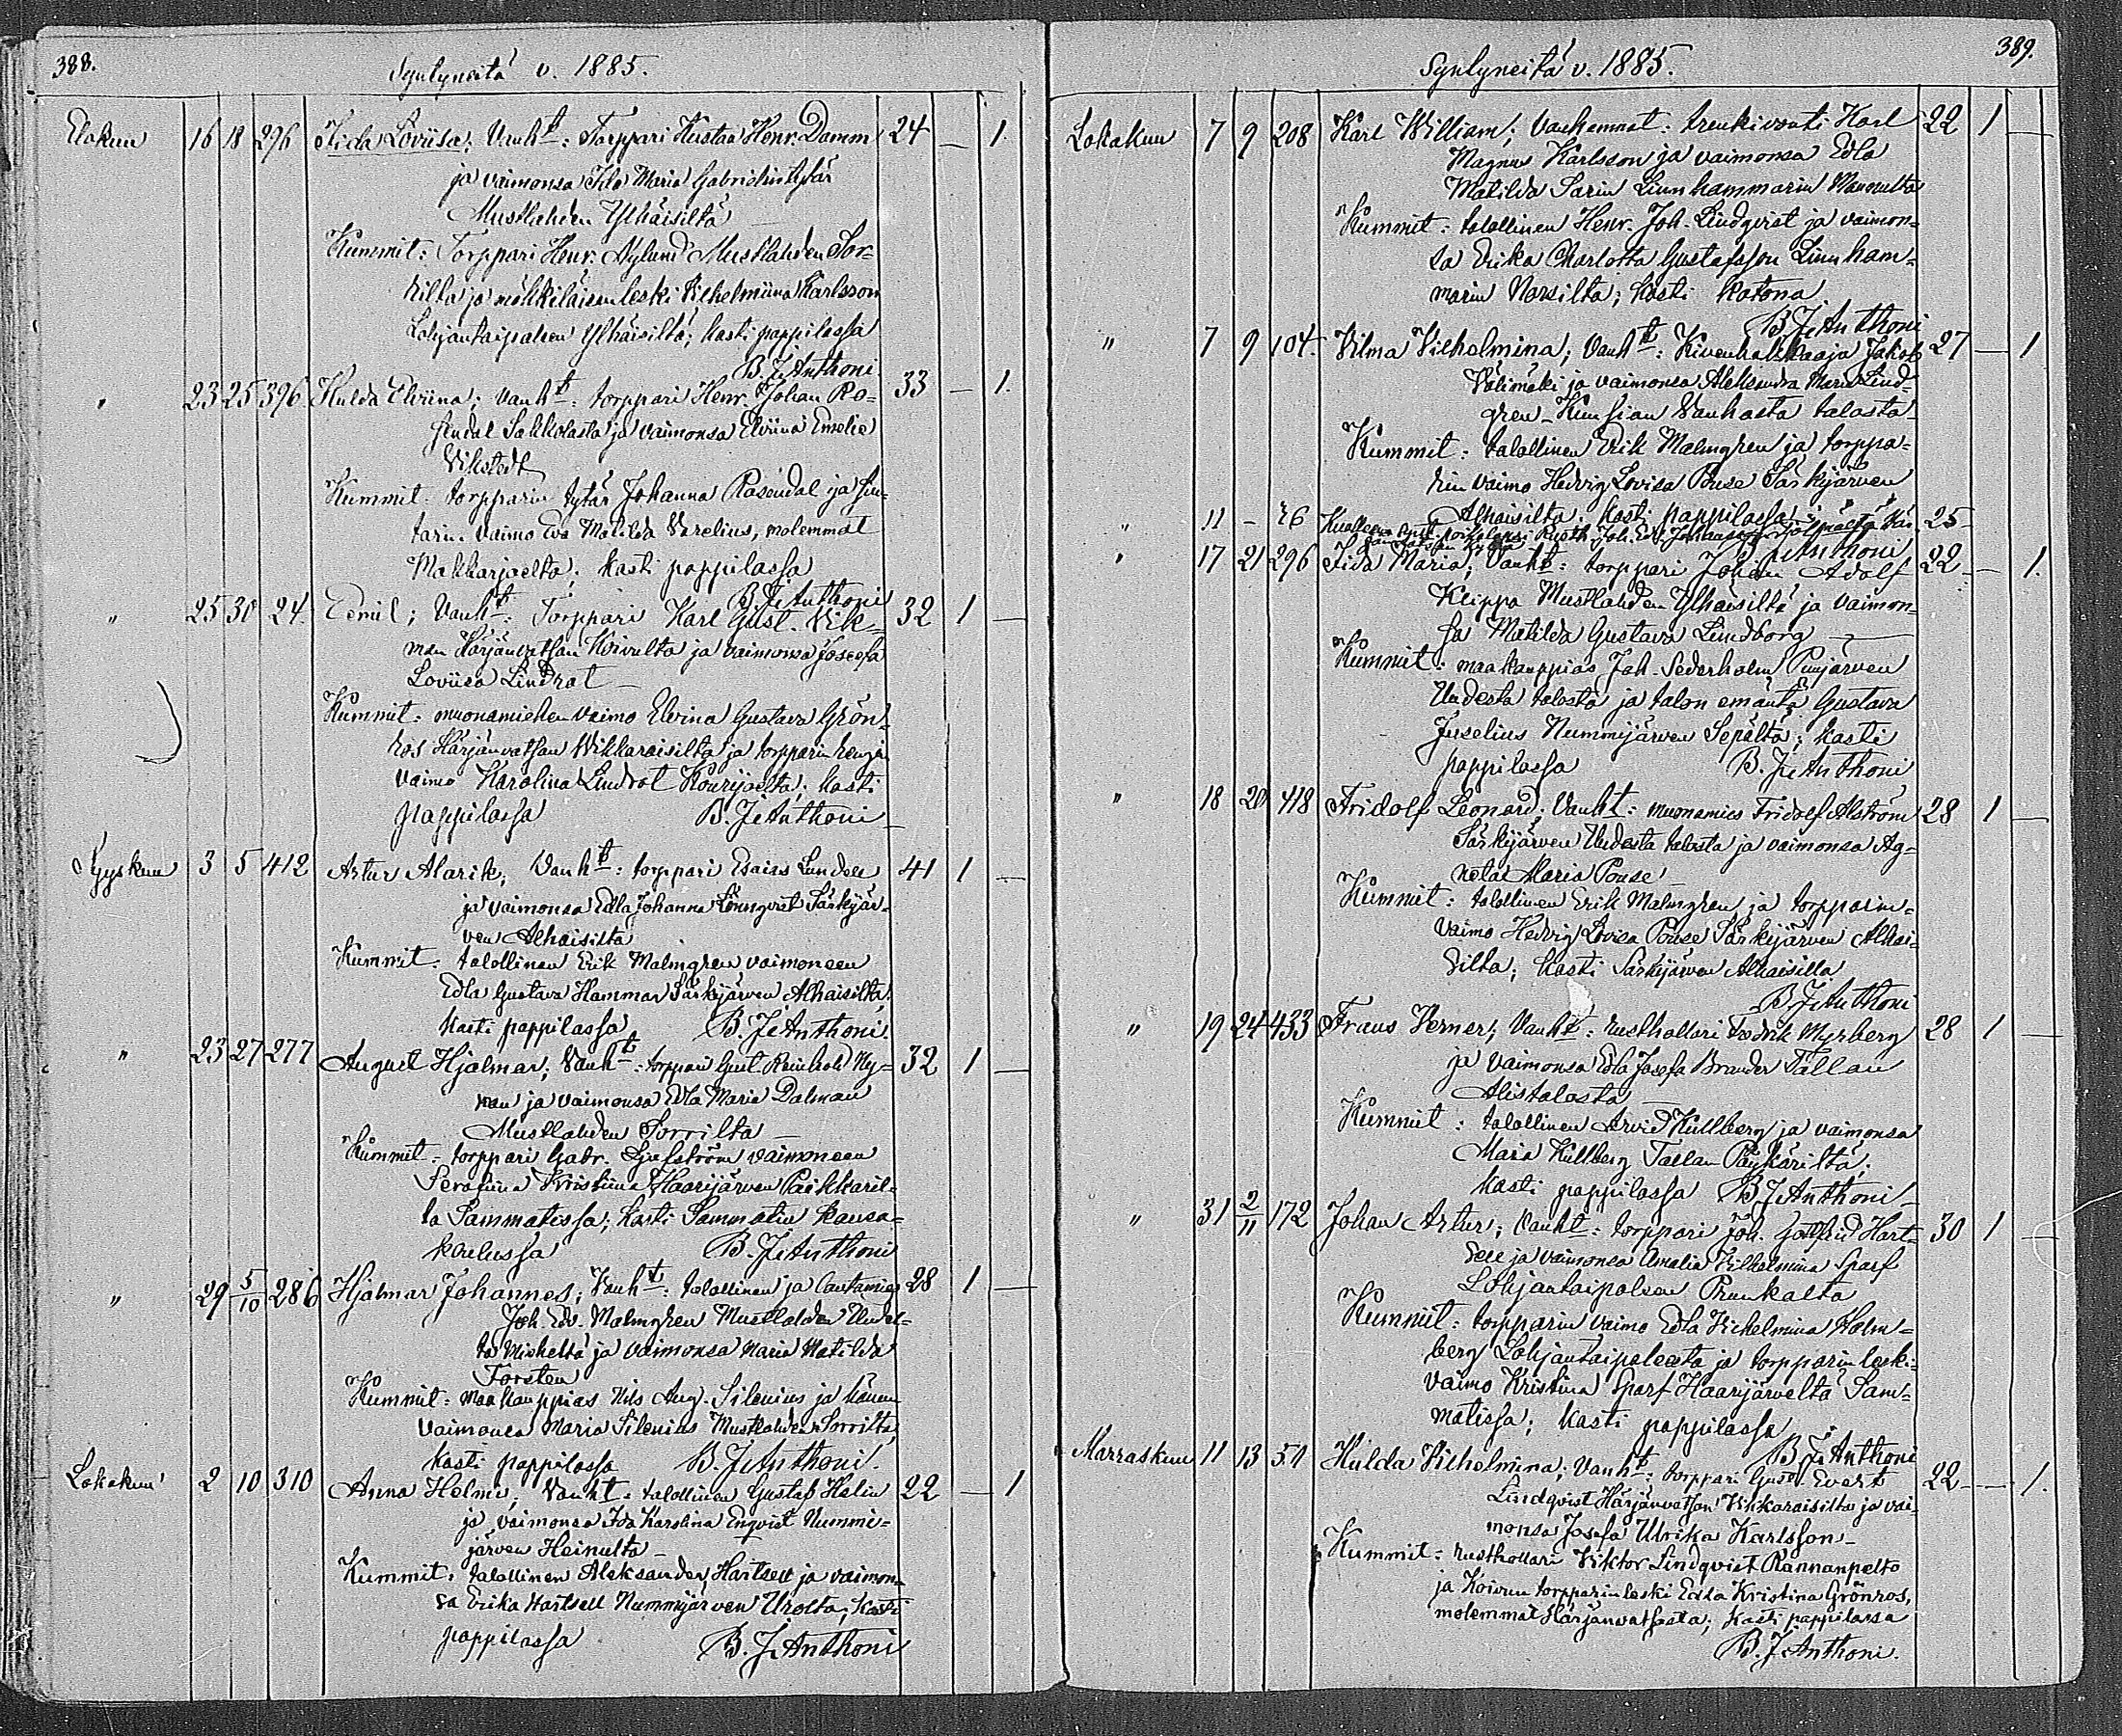 388.
Synlyneitä v. 1885.
Elokuu 16 18 296 Iida Loviisa; Vanht: Torppari Kustaa Henr. Damm 24 — 1.
ja vaimonsa Ida Maria Gabrielintytär
Mustlahden Ylhäisiltä —
Kummit: Torppari Henr. Nylund Mustlahden Sor-
rilta ja mökkiläisen leski Vilhelmiina Karlsson
Lohjantaipaleen Ylhäisiltä; kasti pappilassa
B. J. Anthoni
" 23 25 396 Hulda Elviina; Vanht: torppari Henr. Johan Ro- 33 — 1.
sendal Sakkolasta ja vaimonsa Elviina Emelie
Vikstedt
Kummit: torpparin tytär Johanna Rosendal ja suu-
tarin vaimo Eva Matilda Varelius, molemmat
Makkarjoelta; kasti pappilassa
B. J. Anthoni
" 25 30 24. Eemil; Vanht: Torppari Karl Gust. Vik- 32 1 —
man Härjänvatsan Koivulta ja vaimonsa Josefa
Loviisa Lindrot —
Kummit: muonamiehen vaimo Elvina Gustava Grön-
ros Härjänvatsan Wikkaraisilta ja torpparin
vaimo Karolina Lindrot Kourjoelta; kasti
pappilassa B. J. Anthoni
Syyskuu 3 5 412 Artur Alarik; Vanht: torppari Esaias Lundell 41 1 —
ja vaimonsa Edla Johanna Lönnqvist Särkijär-
ven Alhaisilta
Kummit: talollinen Erik Malmgren vaimoneen
Edla Gustava Hammar Särkijärven Alhaisilta;
kasti pappilassa B. J. Anthoni.
" 23 27 277 August Hjalmar; Vanht: torppari Gust. Reinhold Ny- 32 1 —
man ja vaimonsa Edla Maria Dalman
Mustlahden Sorrilta —
Kummit: torppari Gabr. vaimoneen
Serafiina Kristiina Haarijärven Paikkaril-
ta Sammatissa; kasti Sammatin kansa-
koulussa B. J. Anthoni
" 29 5/10 286 Hjalmar Johannes; Vanht: talollinen ja lautamies 28 1 —
Joh. Edv. Malmgren Mustlahden Uudel-
ta ja vaimonsa Maria Matilda
Forsten
Kummit: maakauppias Nils Aug. Silenius ja hänen
vaimonsa Maria Silenius Mustlahden Sorrilta;
kasti pappilassa B. J. Anthoni.
Lokakuu 2 10 310 Anna Helmi; Vanht: talollinen Gustaf Helin 22 — 1
ja vaimonsa Ida Karolina Enqvist Nummi-
järven Heinulta —
Kummit: talollinen Aleksander Hartsell ja vaimon-
sa Erika Hartsell Nummijärven Urolta; kasti
pappilassa B. J. Anthoni
389.
Synlyneitä v. 1885.
Lokakuu 7 9 208 Karl William; Vanhemmat: trenkivouti Karl 22 1 —
Magnus Karlsson ja vaimonsa Edla
Matilda Sarin Linnhammarin
Kummit: talollinen Henr. Joh. Lindqvist ja vaimon-
sa Erika Charlotta Gustafsson Linnham-
marin; kasti kotona
B. J. Anthoni
" 7 9 104. Vilma Vilhelmina; Vanht: Kivenhakkaaja Jakob 27 — 1
Välimäki ja vaimonsa Aleksandra Maria Lind-
gren Vanhasta talosta
Kummit: talollinen Erik Malmgren ja torppa-
rin vaimo Hedvig Lovisa Pouse Särkijärven
Alhaisilta; kasti pappilassa
B. J. Anthoni
" 11 — 76 25
" 17 21 296 Iida Maria; Vanht: torppari Johan Adolf 22 — 1.
Klippa Mustlahden Ylhäisiltä ja vaimon-
sa Matilda Gustava Lindborg —
Kummit: maakauppias Joh. Sederholm Puujärven
Uudesta talosta ja talon emäntä Gustava
Juselius Nummijärven Sepältä; kasti
pappilassa B. J. Anthoni
" 18 20 418 Fridolf Leonard; Vanht: muonamies Fridolf Alström 28 1 —
Särkijärven Uudesta talosta ja vaimonsa Ag-
neta Maria Pouse
Kummit: talollinen Erik Malmgren ja torpparin-
vaimo Hedvig Lovisa Pouse Särkijärven Alhai-
silta; kasti Särkijärven Alhaisilla
B. J. Anthoni
" 19 24 433 Frans Verner; Vanht: rusthollari Fredrik Myrberg 28 1 —
ja vaimonsa Edla Josefa Brander Tallan
Alistalosta —
Kummit: talollinen Arvid Kullberg ja vaimonsa
Maria Kullberg Tallan Päykäriltä;
kasti pappilassa B. J. Anthoni
" 31 2/11 172 Johan Artur; Vanht: torppari Joh. Gottfrid Hart- 30 1 —
sell ja vaimonsa Amalia Vilhelmina Sparf
Lohjantaipaleen Prunkalta
Kummit: torpparin vaimo Edla Vilhelmina Holm-
berg Lohjantaipaleesta ja torpparin leski-
vaimo Kristina Sparf Haarijärveltä Sam-
matissa; kasti pappilassa
B. J. Anthoni
Marraskuu 11 13 54 Hulda Vilhelmina; Vanht: torppari Gust. Evert 22 — 1.
Lindqvist Härjänvatsan Vikkaraisilta ja vai-
monsa Josefa Ulrika Karlsson —
Kummit: rusthollari Viktor Lindqvist Rannanpelto
ja Koivun torpparin leski Edla Kristina Grönros,
molemmat Härjänvatsasta; kasti pappilassa
B. J. Anthoni.